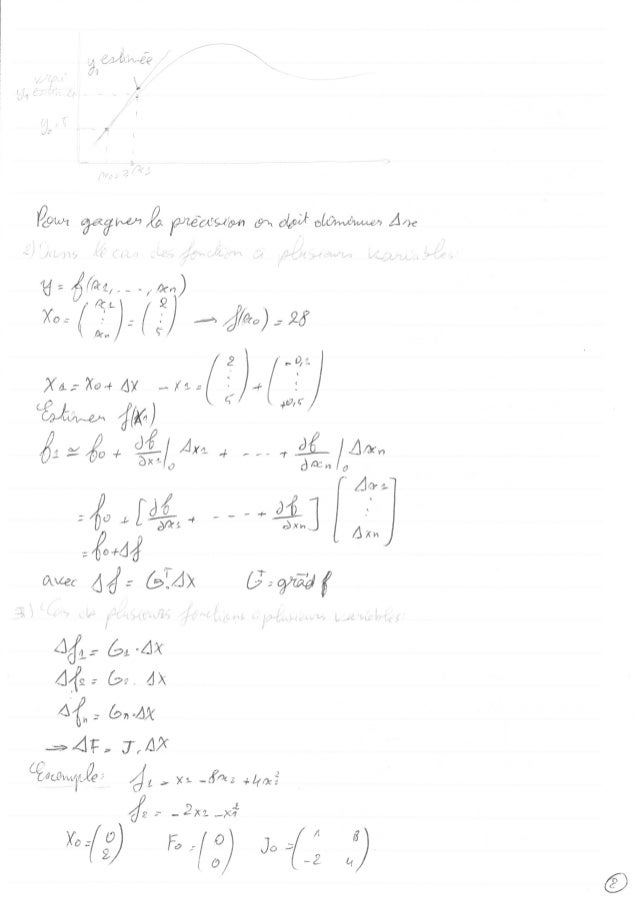 y₁ estimée
vrai
y₁ estimée
y₀ = 5
x₀ = 2 x₁
Pour gagner la précision on doit diminuer Δx
2) Dans le cas des fonction à plusieurs variables:
y = f(x₁, ..., xₙ)
X₀ = (x₁ ⋮ xₙ) = (2 ⋮ 5) → f(x₀) = 28
X₁ = X₀ + ΔX – X₁ = (2 ⋮ 5) + (-0,1 ⋮ +0,5)
Estimer f(X₁)
f₁ ≃ f₀ + ∂f/∂x₁|₀ Δx₁ + ---- + ∂f/∂xₙ|₀ Δxₙ
= f₀ + [∂f/∂x₁ + ---- + ∂f/∂xₙ] [Δx₁ ⋮ Δxₙ]
= f₀ + Δf
avec Δf = Gᵀ.ΔX G^T = grad f
3) Cas de plusieurs fonctions à plusieurs variables:
Δf₁ = G₁ . ΔX
Δf₂ = G₂ . ΔX
Δfₙ = Gn . ΔX
⇒ ΔF = J . ΔX
Exemple: f₁ = x₂ - 8x₁ + 4x₁²
f₂ = -2x₂ - x₁²
X₀ = (0 2) F₀ = (0 0) J₀ = (1 8 -2 4)
2